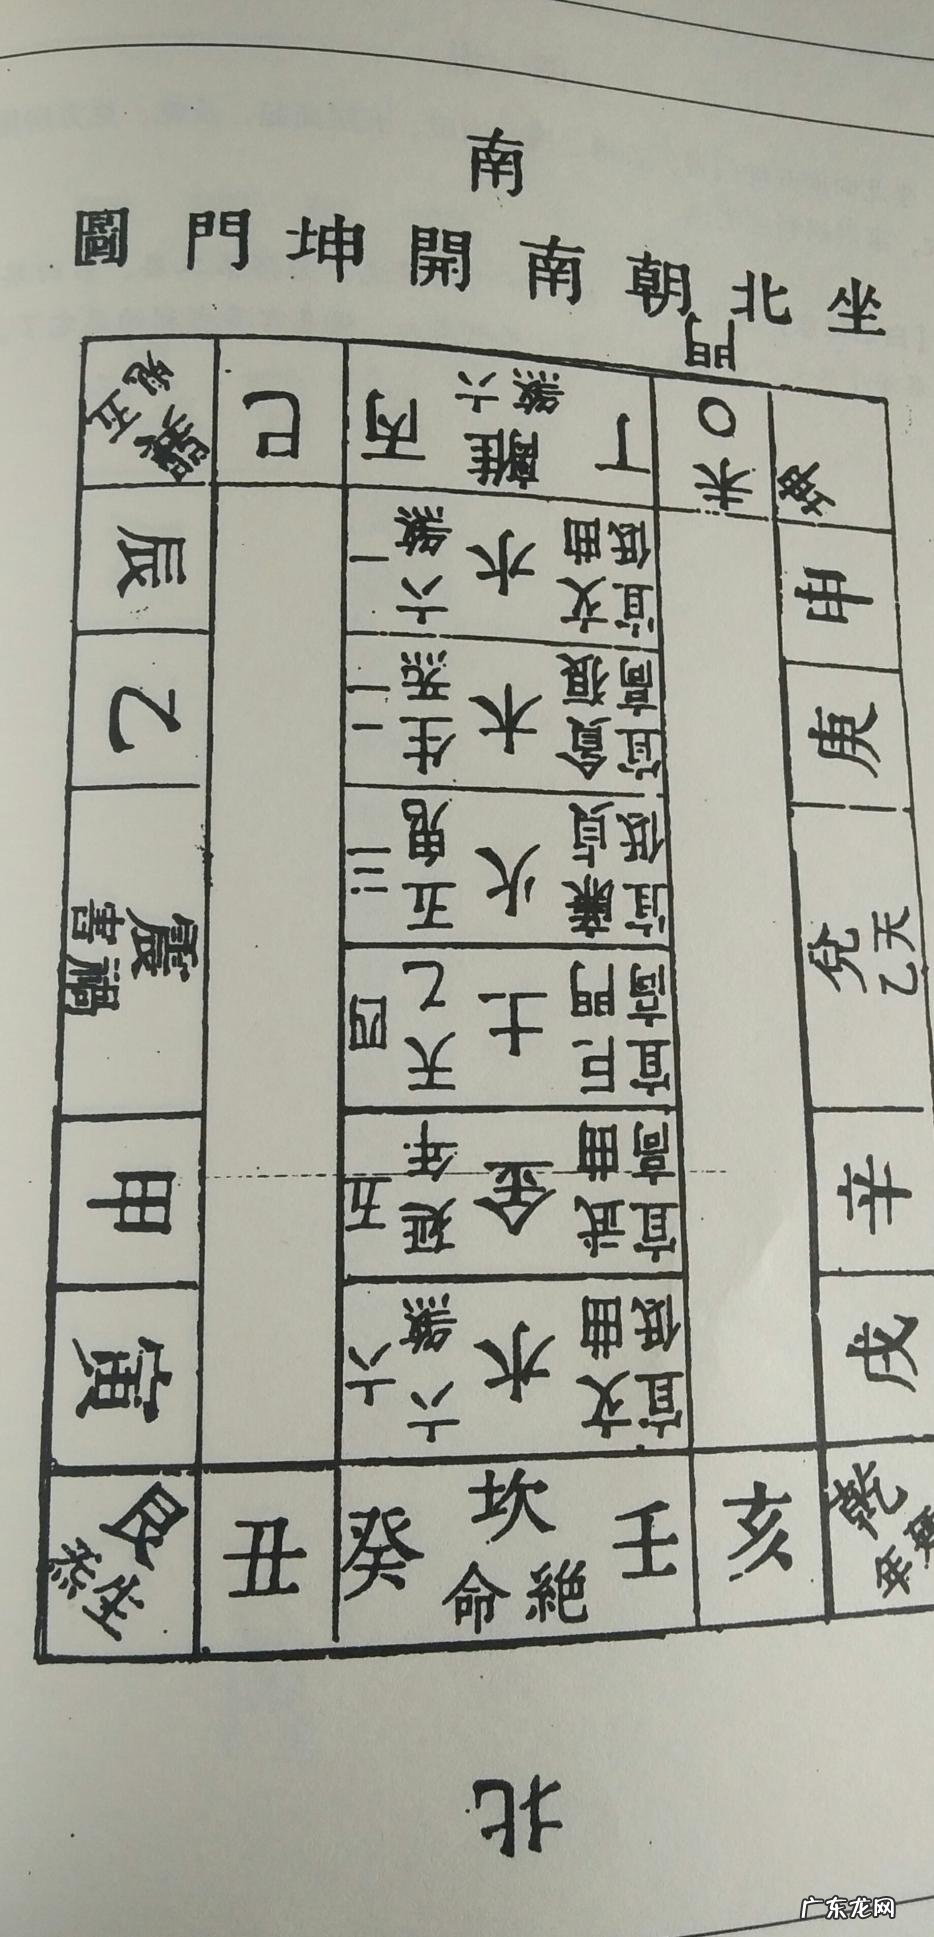 南
坐北朝南開坤門圖
門
五鬼 巽
巳
丙
六煞
離
丁
○
未
坤
辰
一 六煞 水 文曲 宜低
申
乙
二 生炁 木 貪狼 宜高
庚
震
禍害
三 五鬼 火 廉貞 宜低
四 天乙 土 巨門 宜高
兌
天乙
甲
五 延年 金 武曲 宜高
辛
寅
六 六煞 水 文曲 宜低
戌
艮
生炁
丑
癸
坎
絕命
壬
亥
乾
延年
北
广东龙网